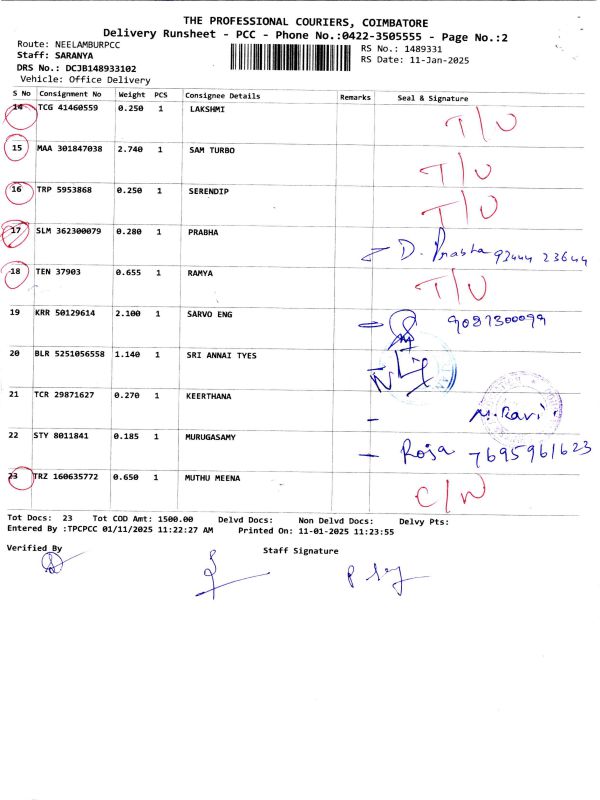 THE PROFESSIONAL COURIERS, COIMBATORE
Delivery Runsheet - PCC - Phone No.:0422-3505555 - Page No.:2
Route: NEELAMBURPCC
Staff: SARANYA
DRS No.: DCJB148933102
Vehicle: Office Delivery
RS No.: 1489331
RS Date: 11-Jan-2025
S No Consignment No Weight PCS Consignee Details Remarks Seal & Signature
14 TCG 41460559 0.250 1 LAKSHMI T/U
15 MAA 301847038 2.740 1 SAM TURBO T/U
16 TRP 5953868 0.250 1 SERENDIP T/U
17 SLM 362300079 0.280 1 PRABHA - D. Prabha 92444 23644
18 TEN 37903 0.655 1 RAMYA T/U
19 KRR 50129614 2.100 1 SARVO ENG 9087300099
20 BLR 5251056558 1.140 1 SRI ANNAI TYES
21 TCR 29871627 0.270 1 KEERTHANA - M.Ravi.
22 STY 8011841 0.185 1 MURUGASAMY - Roja 7695961623
23 TRZ 160635772 0.650 1 MUTHU MEENA C/N
Tot Docs: 23 Tot COD Amt: 1500.00 Delvd Docs: Non Delvd Docs: Delvy Pts:
Entered By :TPCPCC 01/11/2025 11:22:27 AM Printed On: 11-01-2025 11:23:55
Verified By Staff Signature